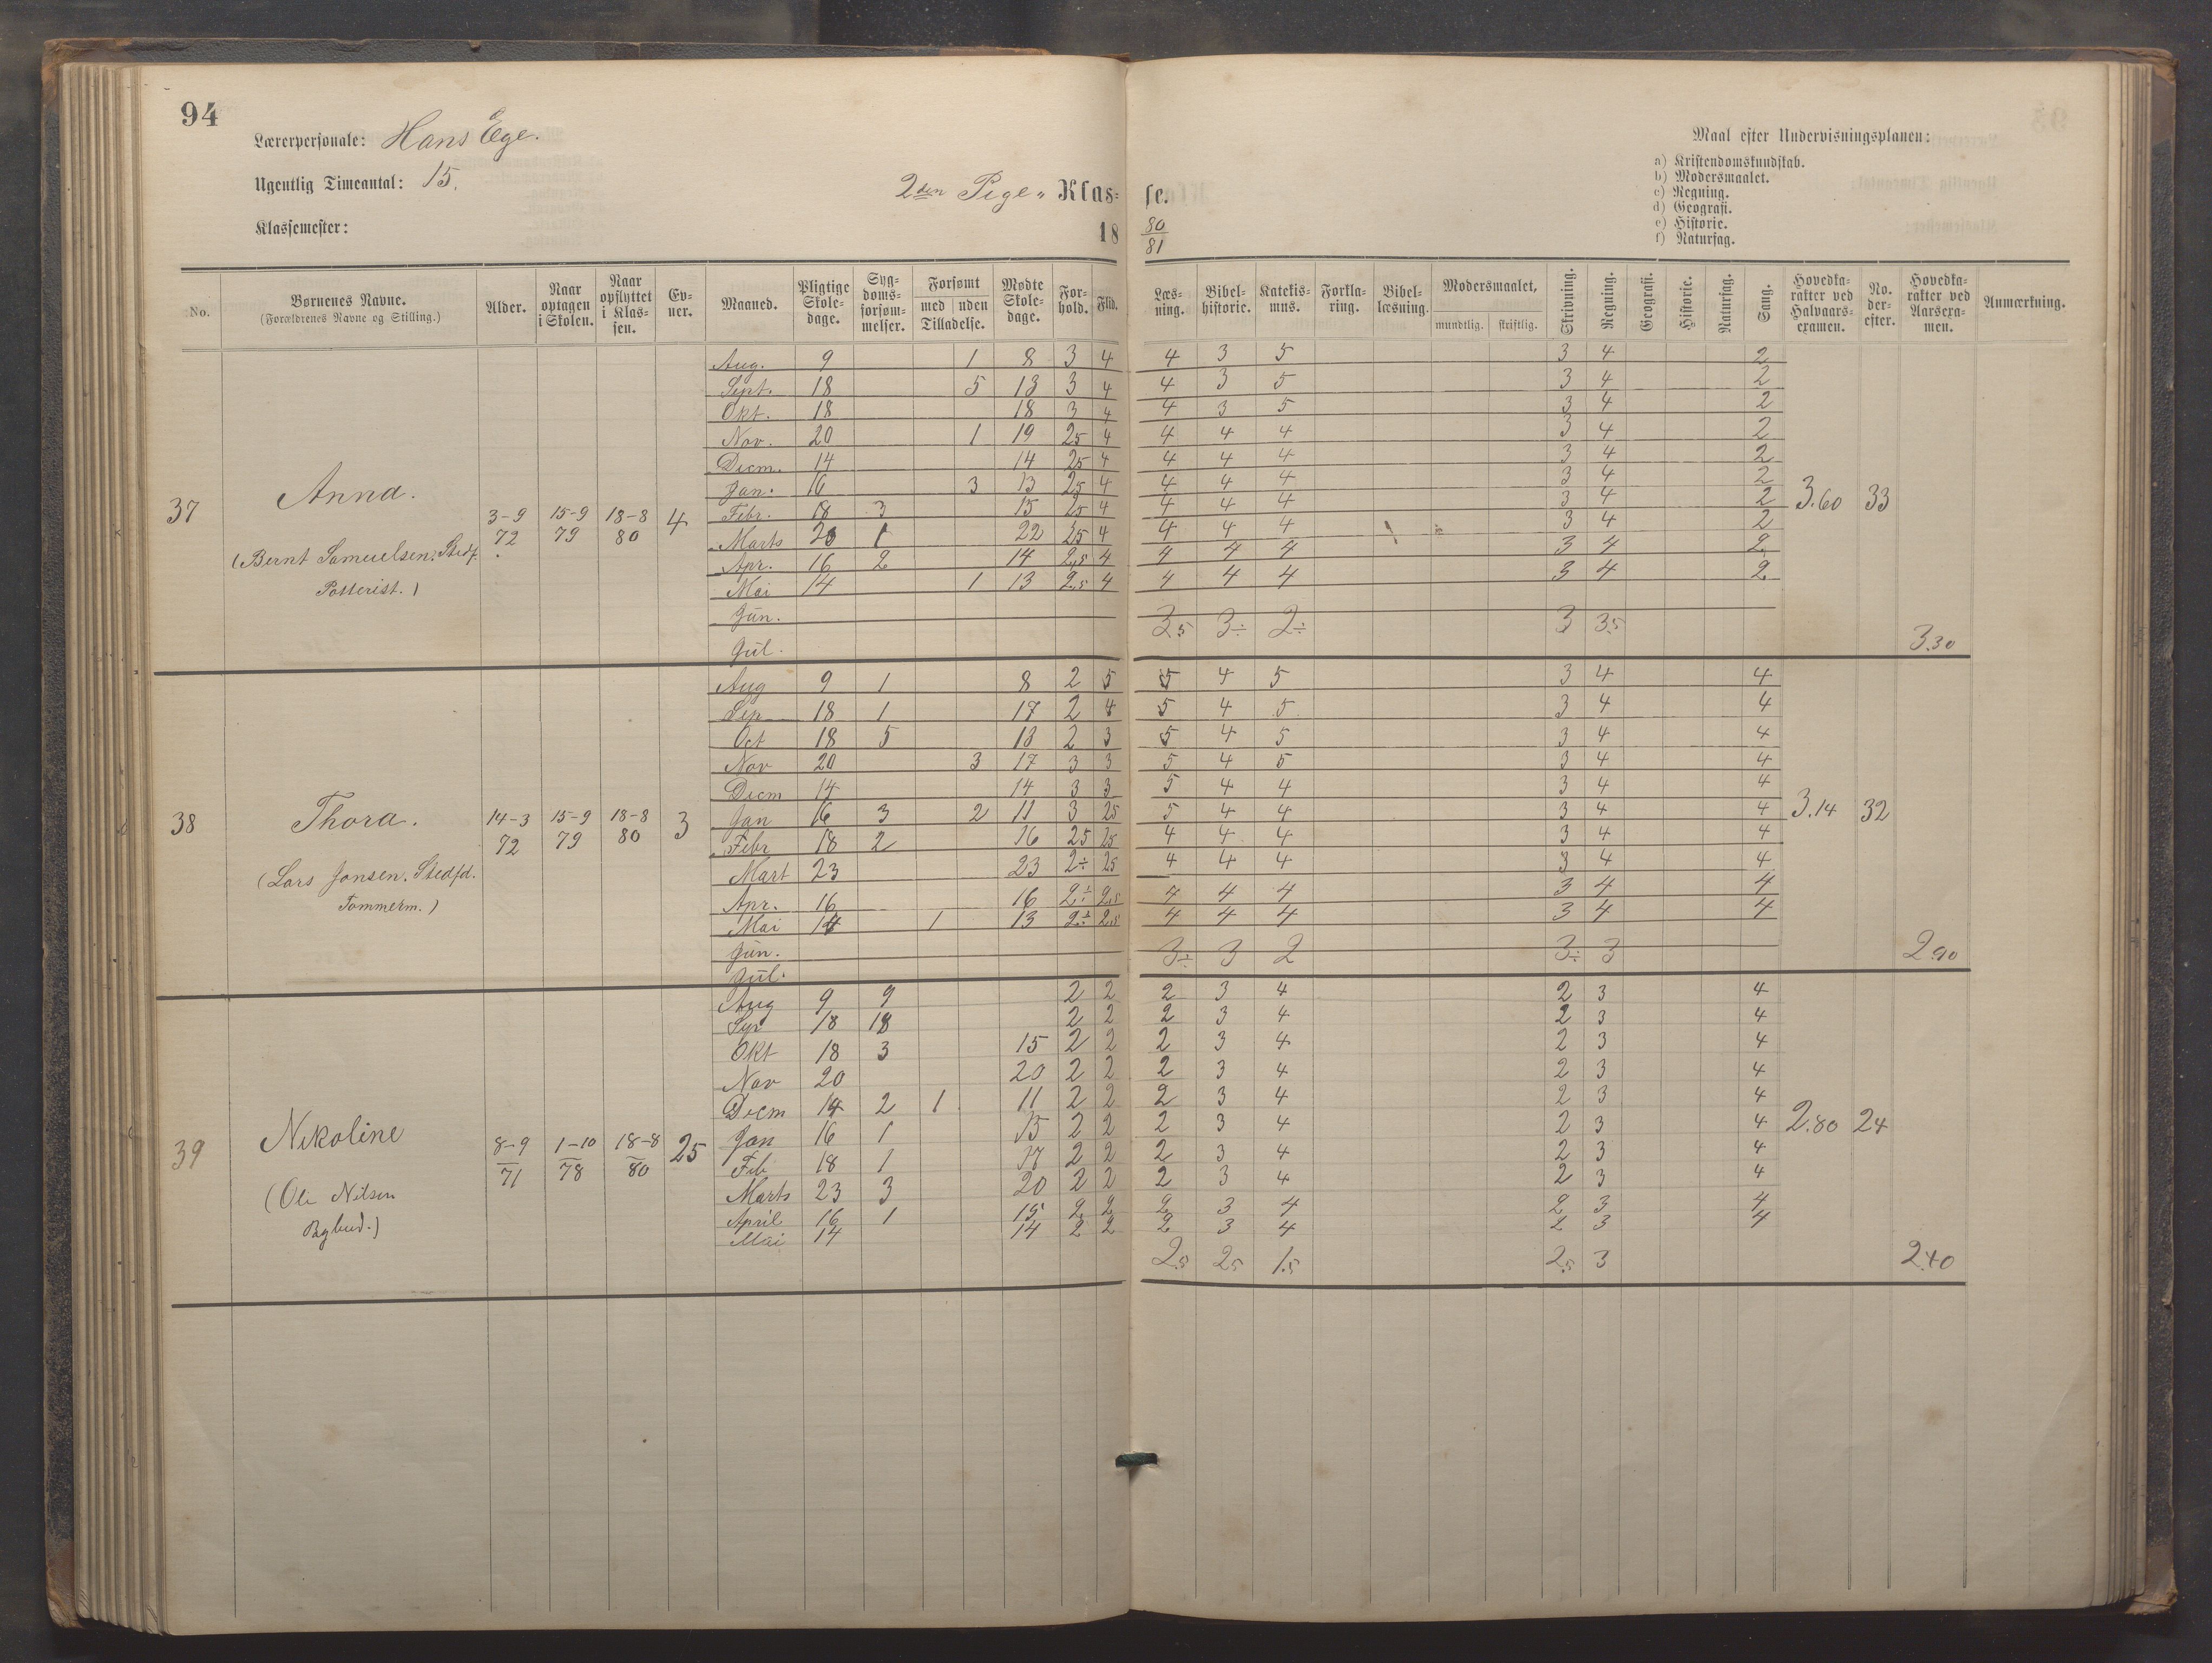 94
Lærerpersonale: Hans Ege.
Ugentlig Timeantal: 15.
Klassemester:
2den Pige„ Klas= se.
18 80/81
Maal efter Undervisningsplanen:
a) Kristendomskundskab.
b) Modersmaalet.
c) Regning.
d) Geografi.
e) Historie.
f) Naturfag.
No. Børnenes Navne. (Forældrenes Navne og Stilling.) Alder. Naar optagen i Skolen. Naar opflyttet i Klas- sen. Ev- ner. Maaned. Pligtige Skole- dage. Syg- doms- forsøm- melser. Forsømt med uden Tilladelse. Mødte Skole- dage. For- hold. Flid. Læs- ning. Bibel- historie. Katekis- mus. Forkla- ring. Bibel- læsning. Modersmaalet, mundtlig. skriftlig. Skrivning. Regning. Geografi. Historie. Naturfag. Sang. Hovedka- rakter ved Halvaars- examen. No. der- efter. Hovedka- rakter ved Aarsexa- men. Anmærkning.
37 Anna. (Bernt Samuelsen, Stedf. Potterist.) 3-9 72 15-9 79 18-8 80 4 3.60 33
Aug. 9 1 8 3 4 4 3 5 3 4 2
Sept. 18 5 13 3 4 4 3 5 3 4 2
Okt. 18 18 3 4 4 3 5 3 4 2
Nov. 20 1 19 25 4 4 4 4 3 4 2
Decm. 14 14 25 4 4 4 4 3 4 2
Jan. 16 3 13 25 4 4 4 4 3 4 2
Febr. 18 3 15 25 4 4 4 4 3 4 2
Marts 23 1 22 25 4 4 4 4 3 4 2
Apr. 16 2 14 2,5 4 4 4 4 3 4 2
Mai 14 1 13 2,5 4 4 4 4 3 4 2
Jun. 3.5 3÷ 2÷ 3 3.5
Jul. 3.30
38 Thora. (Lars Jonsen. Stedfd. Tømmerm.) 14-3 72 15-9 79 18-8 80 3 3.14 32
Aug 9 1 8 2 5 5 4 5 3 4 4
Sep 18 1 17 2 4 5 4 5 3 4 4
Oct 18 5 13 2 3 5 4 5 3 4 4
Nov 20 3 17 3 3 5 4 5 3 4 4
Decm 14 14 3 3 5 4 4 3 4 4
Jan 16 3 2 11 3 25 5 4 4 3 4 4
Febr 18 2 16 25 25 4 4 4 3 4 4
Mart 23 23 2÷ 25 4 4 4 3 4 4
Apr. 16 16 2÷ 2,5 4 4 4 3 4 4
Mai 14 1 13 2÷ 2,5 4 4 4 3 4 4
Jun. 3÷ 3 2 3÷ 3 2.90
Jul.
39 Nikoline (Ole Nilsen Bybud.) 8-9 71 1-10 78 18-8 80 25 2.80 24
Aug 9 9 2 2 2 3 4 2 3 4
18 18 2 2 2 3 4 2 3 4
Okt 18 3 15 2 2 2 3 4 2 3 4
Nov 20 20 2 2 2 3 4 2 3 4
Decm 14 2 1 11 2 2 2 3 4 2 3 4
Jan 16 1 15 2 2 2 3 4 2 3 4
Feb 18 1 17 2 2 2 3 4 2 3 4
Marts 23 3 20 2 2 2 3 4 2 3 4
April 16 1 15 2 2 2 3 4 2 3 4
Mai 14 14 2 2 2 3 4 2 3 4
2.5 25 1.5 2.5 3 2.40